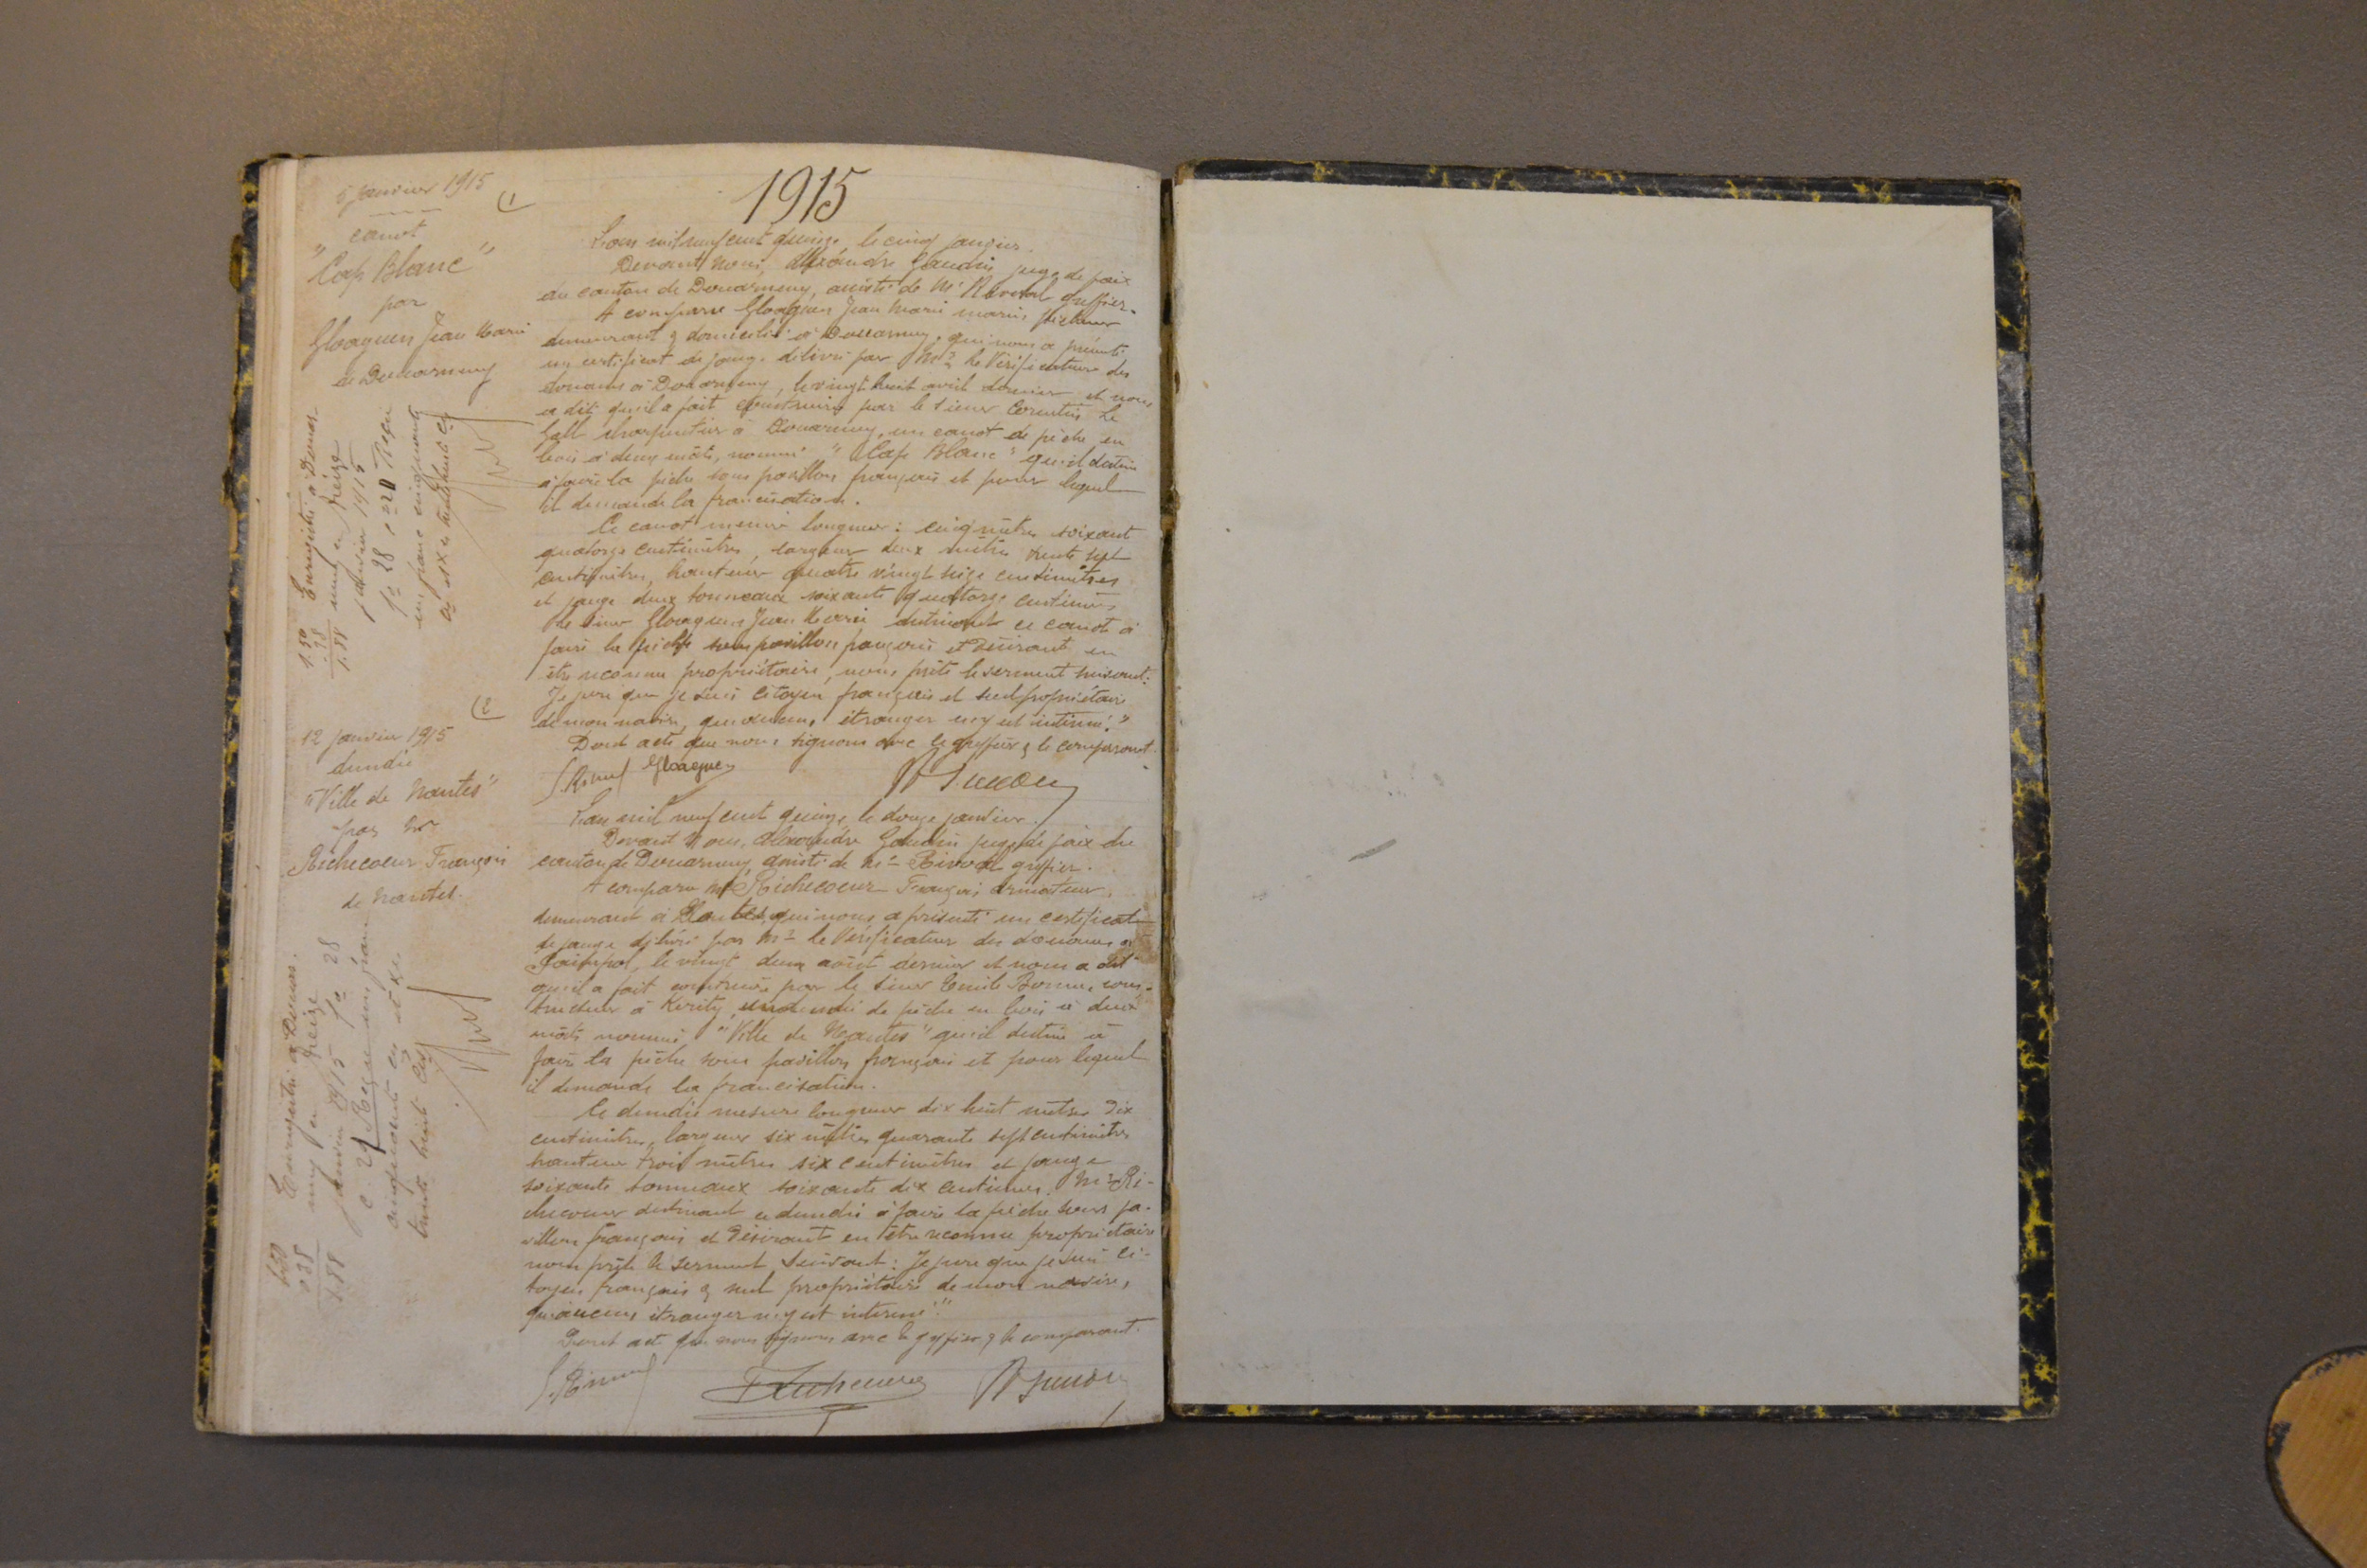 1915
5 janvier 1915
canot
"Cap Blanc"
par
Gloaguen Jean Marie
de Douarnenez
(1
L'an mil neuf cent quinze, le cinq janvier.
Devant Nous, Alexandre Gaudin juge de paix
du canton de Douarnenez, assisté de Me Rivoal greffier.
A comparu Gloaguen Jean Marie marin pêcheur
demeurant & domicilié à Douarnenez, qui nous a présenté
un certificat de jauge délivré par Mr le Vérificateur des
douanes à Douarnenez, le vingt huit avril dernier et nous
a dit qu'il a fait construire par le sieur Corentin Le
Gall charpentier à Douarnenez, un canot de pêche en
bois à deux mâts, nommé "Cap Blanc" qu'il destine
à faire la pêche sous pavillon français et pour lequel
il demande la francisation.
Ce canot mesure longueur : cinq mètres soixante
quatorze centimètres, largeur deux mètres trente sept
centimètres, hauteur quatre vingt seize centimètres
et jauge deux tonneaux soixante quatorze centièmes
Le sieur Gloaguen Jean Marie destinant ce canot à
faire la pêche sous pavillon français et désirant en
être reconnu propriétaire, nous prête le serment suivant :
Je jure que je suis citoyen français et seul propriétaire
de mon navire, qu'aucun étranger n'y est intéressé."
Dont acte que nous signons avec le greffier & le comparant.
Gloaguen
Enregistré à Douar
nenez, treize
janvier 1915
fo 28, c 22 Reçu
un franc cinquante
cs et xes trente huit cs
1.50
.38
1.88
(2
12 janvier 1915
dundée
"Ville de Nantes"
par Mr
Richecoeur François
de Nantes.
L'an mil neuf cent quinze, le douze janvier.
Devant Nous, Alexandre Gaudin juge de paix du
canton de Douarnenez, assisté de Me Rivoal greffier.
A comparu Mr Richecoeur François armateur
demeurant à Nantes, qui nous a présenté un certificat
de jauge délivré par Mr le Vérificateur des douanes à
Paimpol, le vingt deux août dernier et nous a dit
qu'il a fait construire par le sieur Emile Bonne, cons-
tructeur à Kerity, un dundée de pêche en bois à deux
mâts nommé "Ville de Nantes" qu'il destine à
faire la pêche sous pavillon français et pour lequel
il demande la francisation.
Ce dundée mesure longueur dix huit mètres dix
centimètres, largeur six mètres quarante sept centimètres
hauteur trois mètres six centimètres et jauge
soixante tonneaux soixante dix centièmes. Mr Ri-
checoeur destinant ce dundée à faire la pêche sous pa-
villon français et désirant en être reconnu propriétaire
nous prête le serment suivant : Je jure que je suis ci-
toyen français & seul propriétaire de mon navire,
qu'aucun étranger n'y est intéressé."
Dont acte que nous signons avec le greffier & le comparant.
Enregistré à Douar.
nenez, treize
janvier 1915 fo 28
c 23 Reçu un franc
cinquante cs et xes
trente huit cs
1.50
0 38
1.88